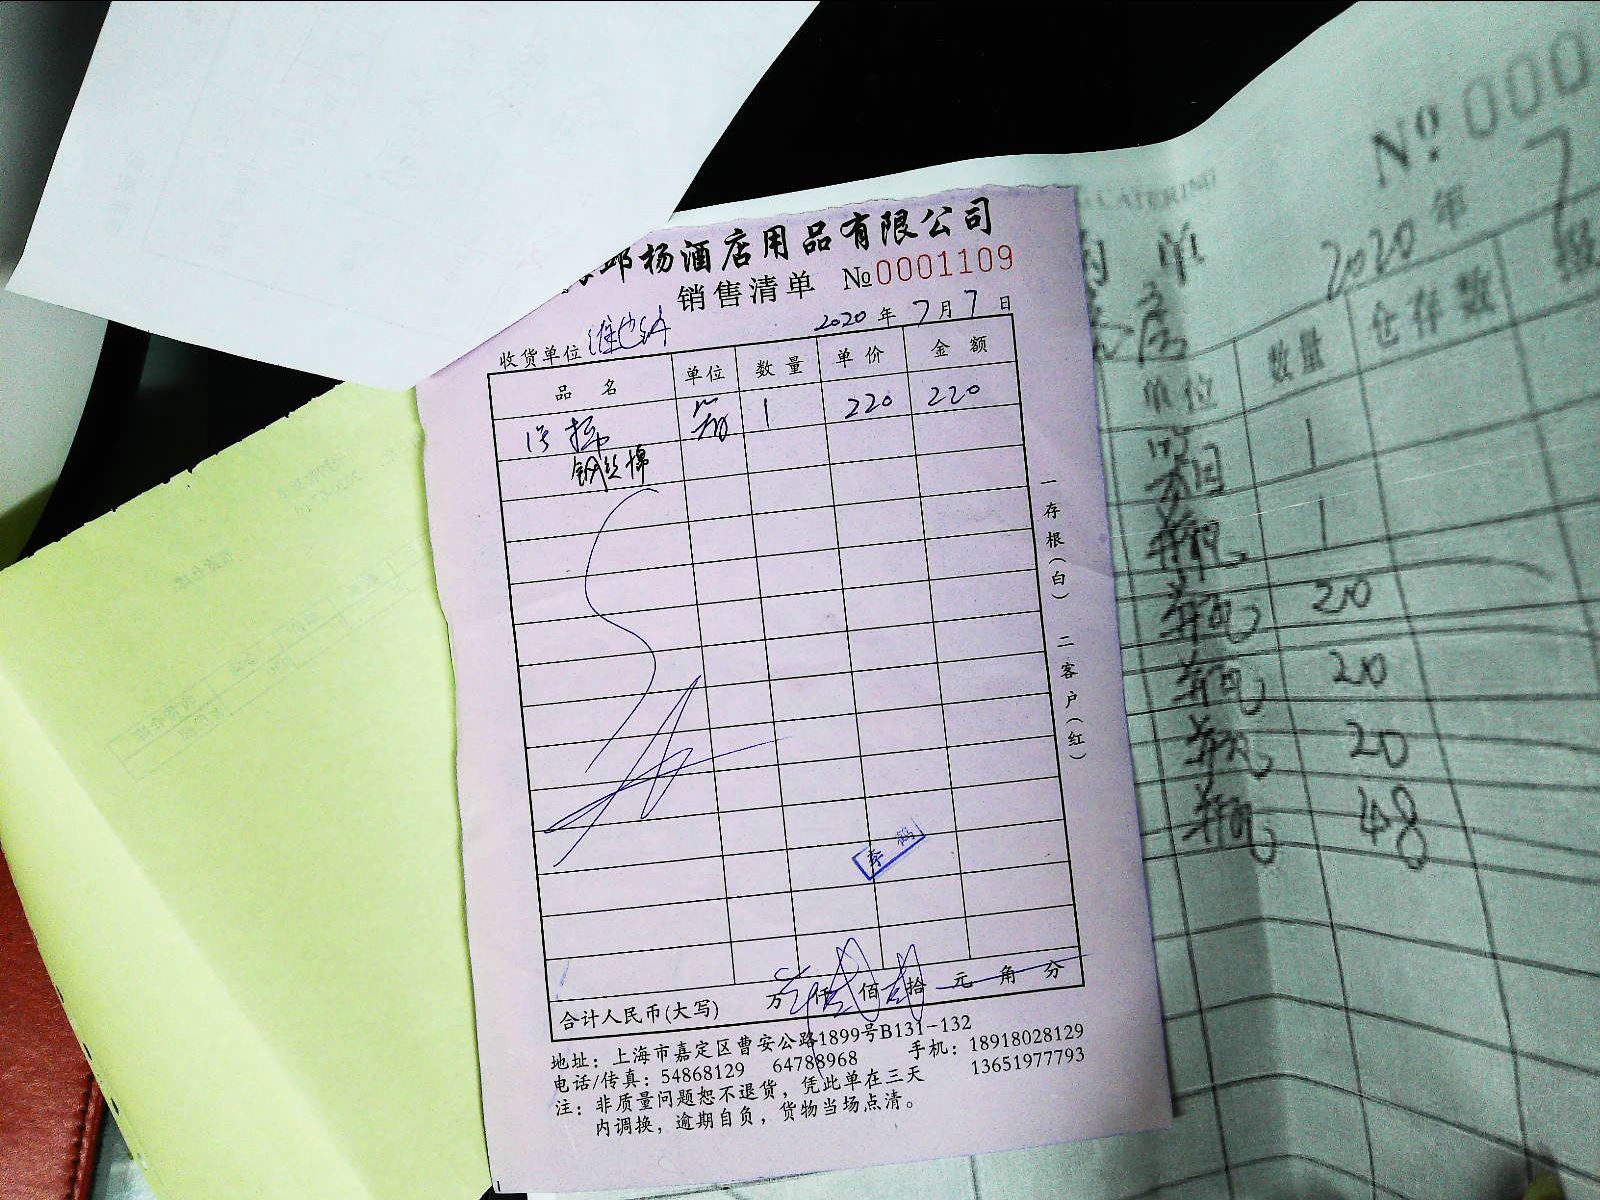 邱杨酒店用品有限公司
销售清单 №0001109
收货单位 维也纳 2020年7月7日
品名 单位 数量 单价 金额
1 220 220
钢丝棉
一存根(白) 二客户(红)
合计人民币(大写) 万仟贰佰贰拾元角分
地址：上海市嘉定区曹安公路1899号B131-132
电话/传真：54868129 64788968 手机：18918028129
13651977793
注：非质量问题恕不退货，凭此单在三天
内调换，逾期自负，货物当场点清。
CATERING
№000
单
2020年7
单位 数量 仓存数
1
1
20
20
20
48